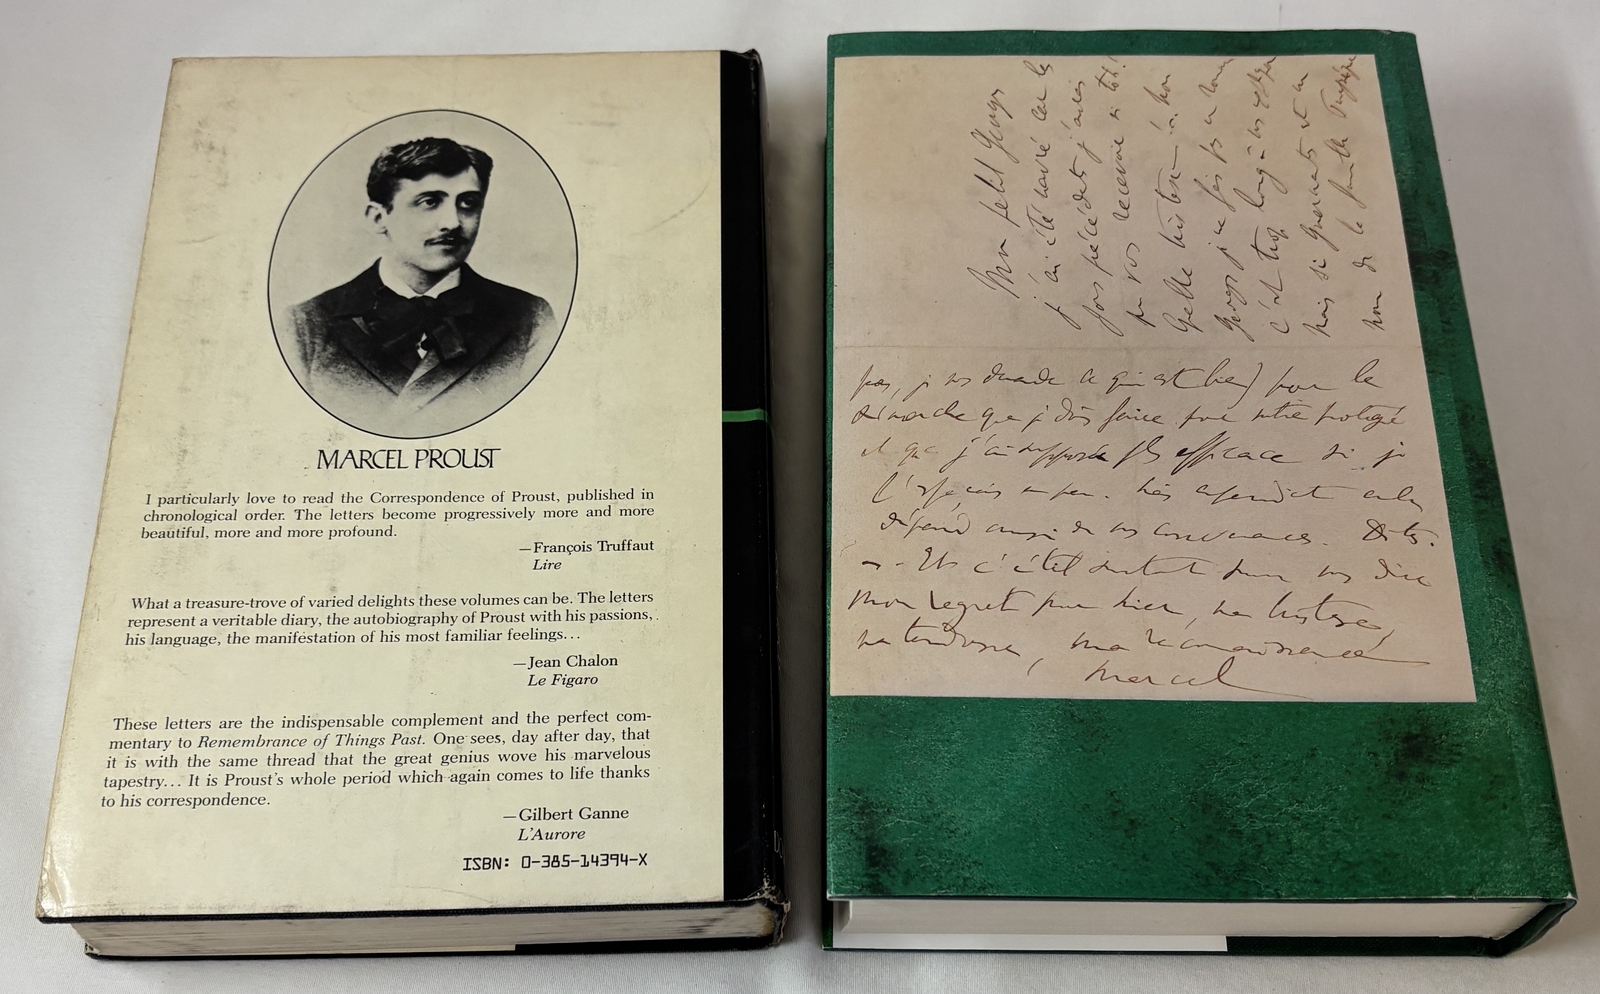 MARCEL PROUST
I particularly love to read the Correspondence of Proust, published in
chronological order. The letters become progressively more and more
beautiful, more and more profound.
—François Truffaut
Lire
What a treasure-trove of varied delights these volumes can be. The letters
represent a veritable diary, the autobiography of Proust with his passions,
his language, the manifestation of his most familiar feelings...
—Jean Chalon
Le Figaro
These letters are the indispensable complement and the perfect com-
mentary to Remembrance of Things Past. One sees, day after day, that
it is with the same thread that the great genius wove his marvelous
tapestry... It is Proust's whole period which again comes to life thanks
to his correspondence.
—Gilbert Ganne
L'Aurore
ISBN: 0-385-14394-X
Mon petit Georges
j'ai été navré car les
jours précédents j'avais
pu vous recevoir si tôt!
Quelle tristesse
Georges je ne
c'est trop long à vous
mais si
nom de la famille
pas, je vous demande ce qui est bien) pour la
démarche que je dois faire pour votre protégé
et que j'ai supposée plus efficace si je
un peu. Mais cela
dépend aussi de vos convenances. Dites.
Et c'était surtout pour vous dire
mon regret pour hier, ma tristesse,
ma tendresse, ma reconnaissance
Marcel